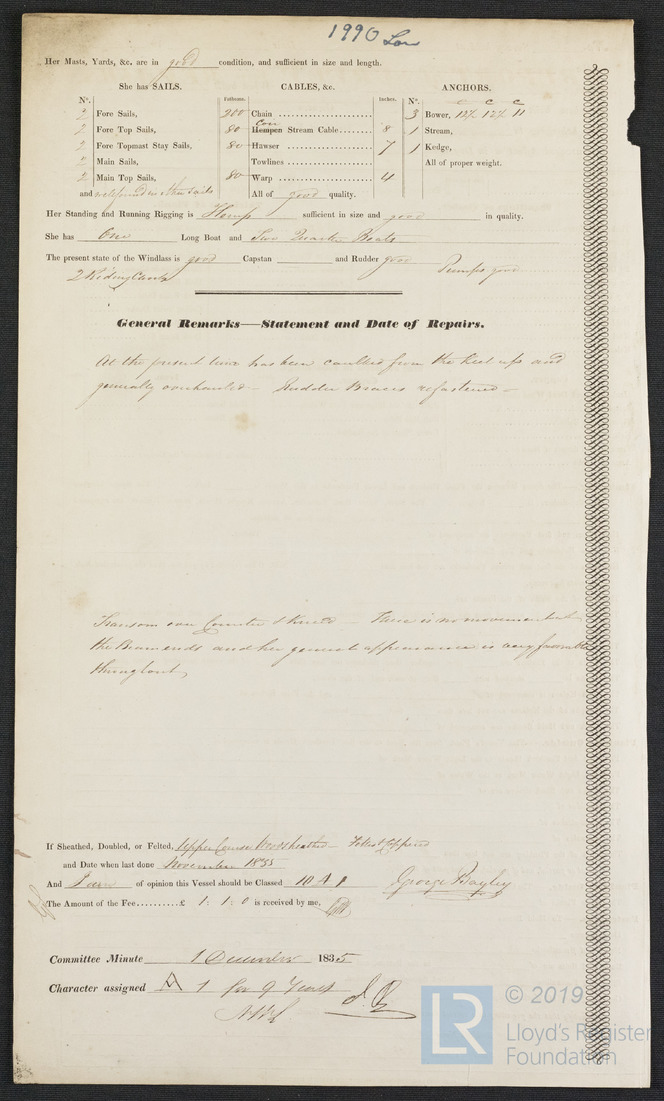 1990 Lon
Her Masts, Yards, &c. are in good condition, and sufficient in size and length.
She has SAILS. CABLES, &c. ANCHORS.
Nº. Fathoms. Inches. Nº. C C C
2 Fore Sails, 200 Chain 3 Bower, 12½ 12½ 11
2 Fore Top Sails, 80 Hempen Coir Stream Cable 8 1 Stream,
2 Fore Topmast Stay Sails, 80 Hawser 7 1 Kedge,
2 Main Sails, Towlines All of proper weight.
2 Main Top Sails, 80 Warp 4
and well found in other sails All of good quality.
Her Standing and Running Rigging is Hemp sufficient in size and good in quality.
She has One Long Boat and Two Quarter Boats
The present state of the Windlass is good Capstan and Rudder good Pumps good
2 Riding
General Remarks—Statement and Date of Repairs.
At the present time has been caulked from the Keel up and
generally overhauled - Rudder Braces refastened -
Transom over Counter & Kneed - There is no movement
the Beam ends and her general appearance is very favorable
throughout,
If Sheathed, Doubled, or Felted, Upper Course Wood sheathed Felted & Coppered
and Date when last done November 1835
And I am of opinion this Vessel should be Classed 10 A 1 George Bayley
The Amount of the Fee..........£ 1 : 1 : 0 is received by me,
Committee Minute 1 December 1835
Character assigned A 1 for 9 Years
LR © 2019
Lloyd's Register
Foundation